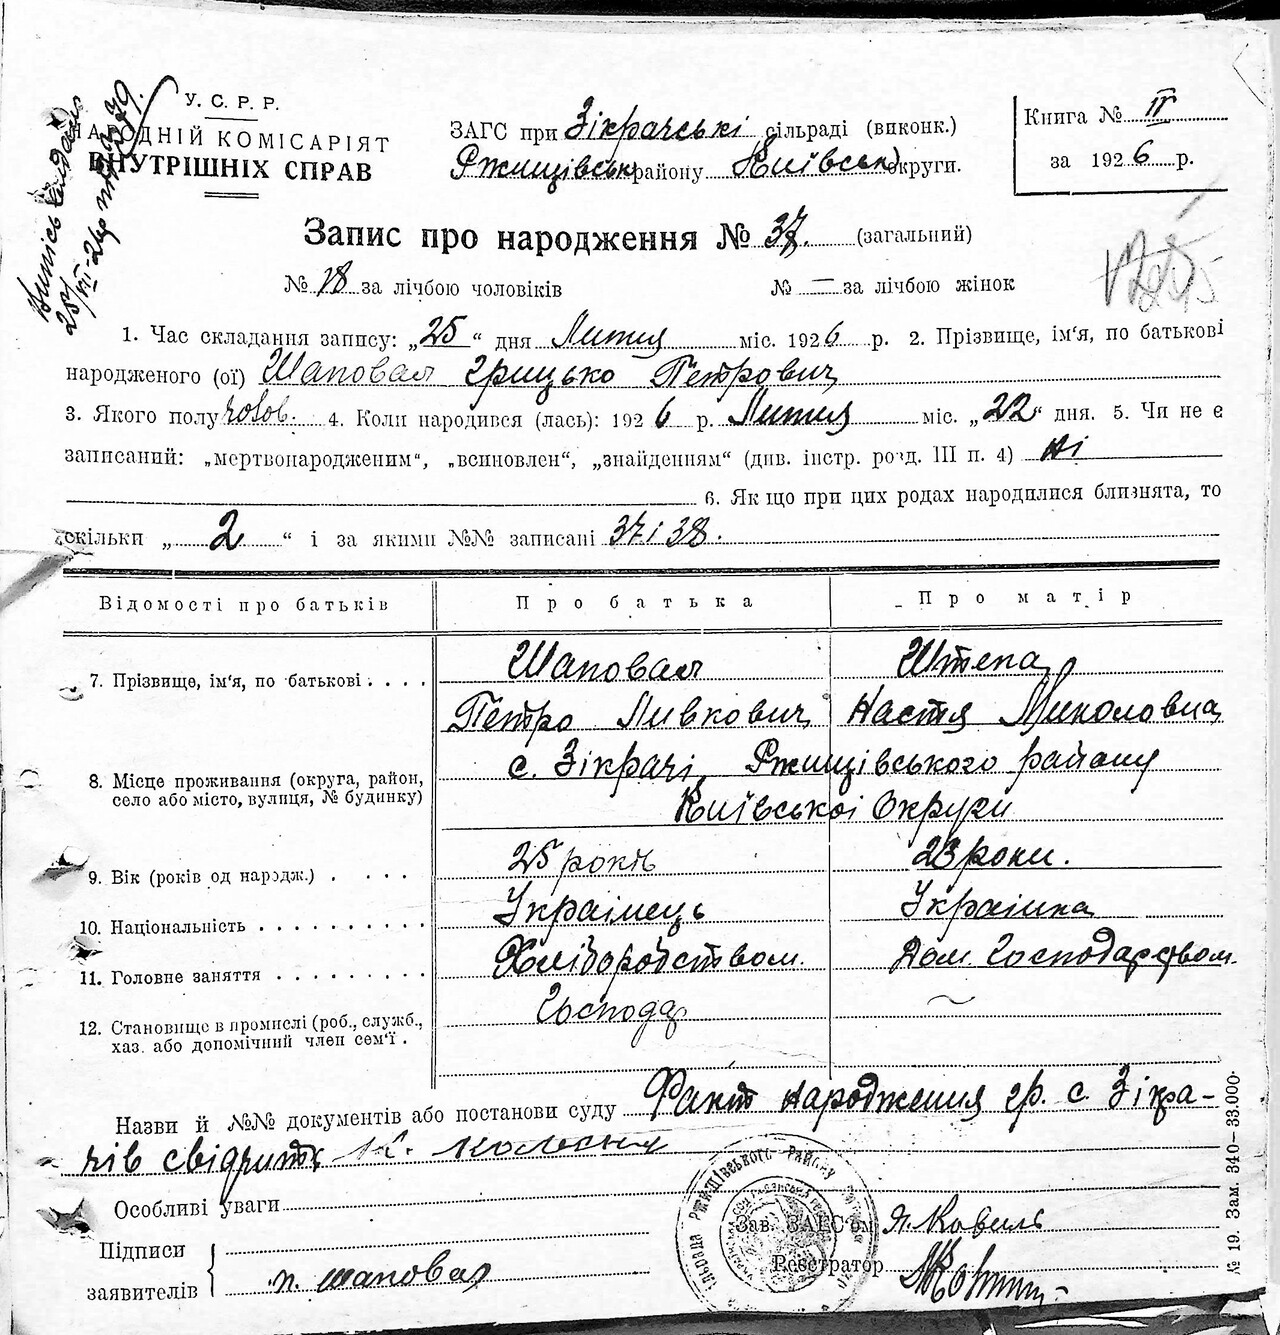 У. С. Р. Р.
НАРОДНІЙ КОМІСАРІЯТ
ВНУТРІШНІХ СПРАВ
ЗАГС при Зікрачські сільраді (виконк.)
Ржищівськ району Київськ округи.
Книга № II
за 1926 р.
Запис про народження № 37. (загальний)
№ 18 за лічбою чоловіків № — за лічбою жінок
1. Час складання запису: „25“ дня Лютия міс. 1926 р. 2. Прізвище, ім‘я, по батькові
народженого (ої) Шаповал Грицько Петрович
3. Якого полу чолов. 4. Коли народився (лась): 1926 р. Лютия міс. „22“ дня. 5. Чи не є
записаний: „мертвонародженим“, „всиновлен“, „знайденням“ (див. інстр. розд. III п. 4) ні
6. Якщо при цих родах народилися близнята, то
скільки „2“ і за якими №№ записані 37 і 38.
Відомості про батьків Про батька Про матір
7. Прізвище, ім‘я, по батькові . . . . Шаповал Штепа
Петро Ливкович Настя Миколовна
8. Місце проживання (округа, район, село або місто, вулиця, № будинку) с. Зікрачі, Ржищівського району
Київської Округи
9. Вік (років од народж.) . . . . . 25 років 23 роки.
10. Національність . . . . . . . . . . Українець Українка
11. Головне заняття . . . . . . . . . Хліборобством. Дом. Господарством.
12. Становище в промислі (роб., служб., Господар ~
хаз. або допомічний член сем‘ї .
Назви й №№ документів або постанови суду Факт народження гр. с. Зікра-
чів свідчить К.
Особливі уваги
Підписи
заявителів п. шаповал
Зав. ЗАГС‘ом Я. Ковиль
Реєстратор
№ 19. Зам. 340–33.000.